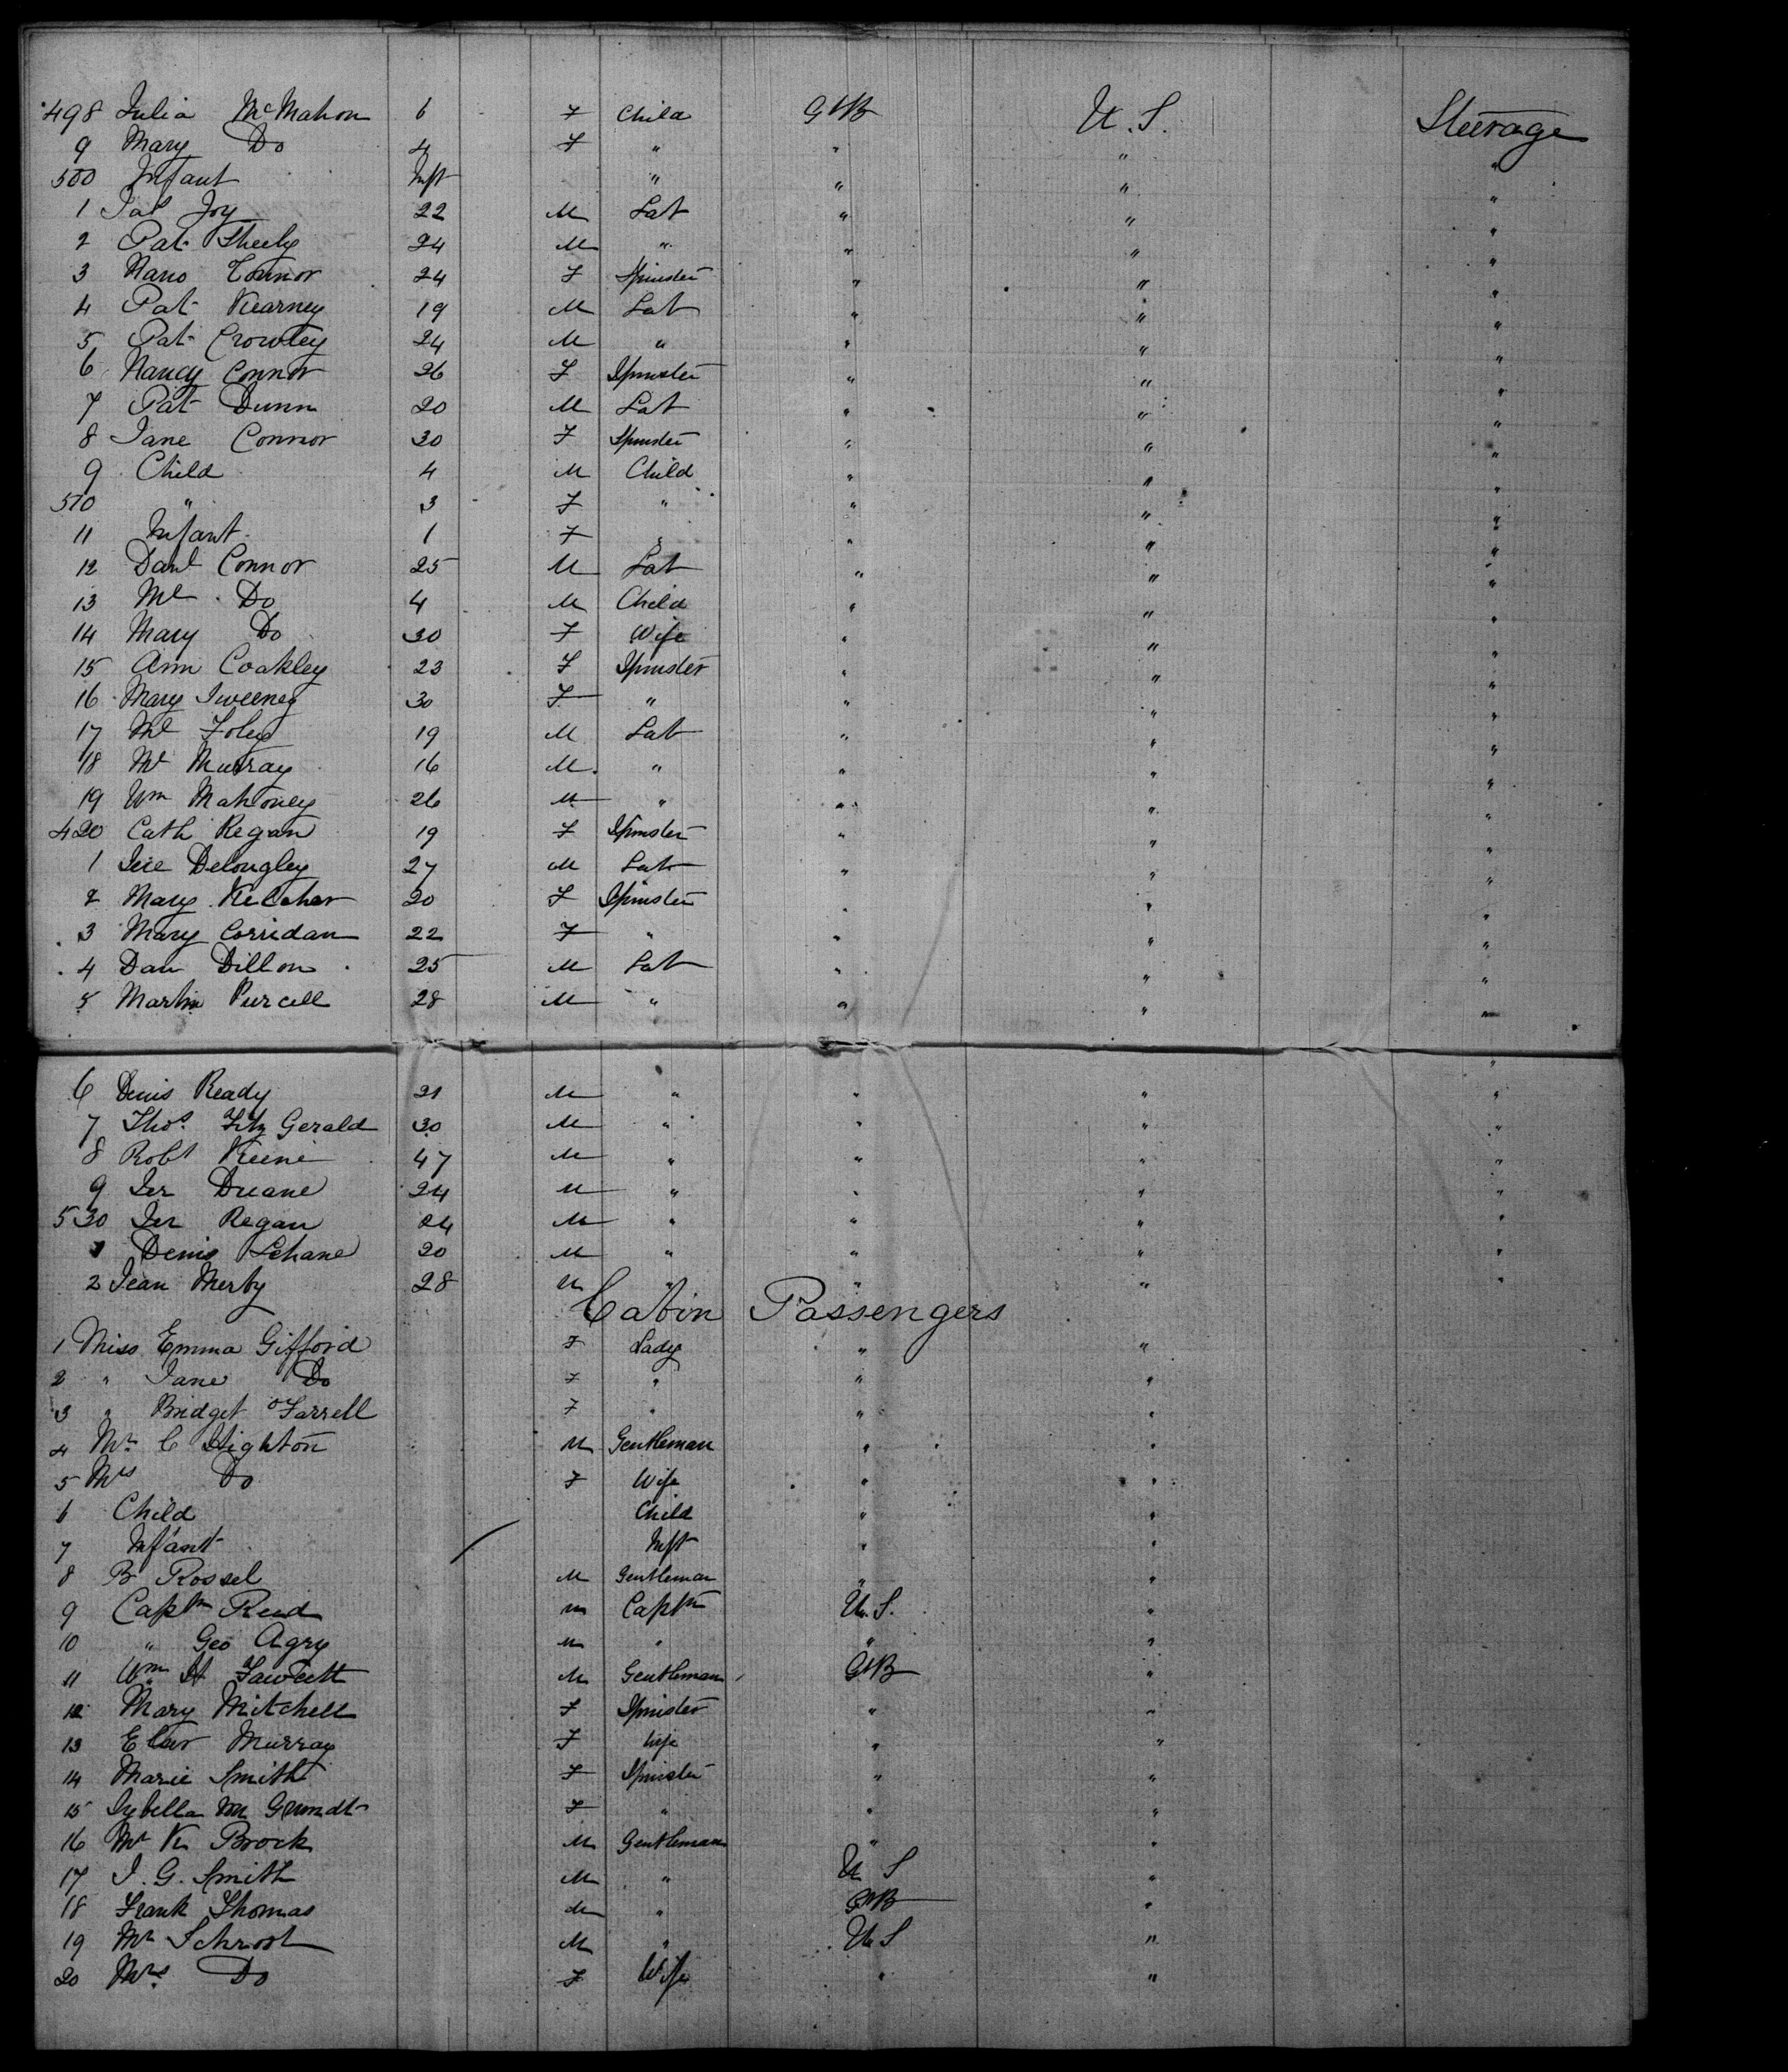 498 Julia McMahon 6 F Child GtB U.S. Steerage
9 Mary Do 4 F " " " "
500 Infant Inft " " " "
1 Pat Joy 22 M Lab " " "
2 Pat Sheehy 24 M " " " "
3 Nano Connor 24 F Spinster " " "
4 Pat Kearney 19 M Lab " " "
5 Pat Crowley 24 M " " " "
6 Nancy Connor 26 F Spinster " " "
7 Pat Dunn 20 M Lab " " "
8 Jane Connor 30 F Spinster " " "
9 Child 4 M Child " " "
510 " 3 F " " " "
11 Infant 1 F " " " "
12 Danl Connor 25 M Lab " " "
13 Ml Do 4 M Child " " "
14 Mary Do 30 F Wife " " "
15 Ann Coakley 23 F Spinster " " "
16 Mary Sweeney 30 F " " " "
17 Ml Foley 19 M Lab " " "
18 Ml Murray 16 M " " " "
19 Wm Mahoney 26 M " " " "
420 Cath Regan 19 F Spinster " " "
1 Jere 27 M Lab " " "
2 Mary Kelleher 20 F Spinster " " "
3 Mary Corridan 22 F " " " "
4 Dan Dillon 25 M Lab " " "
5 Martin Purcell 28 M " " " "
6 Denis Ready 21 M " " " "
7 Thos. Fitz Gerald 30 M " " " "
8 Robt Keene 47 M " " " "
9 Jer Duane 24 M " " " "
530 Jer Regan 24 M " " " "
1 Denis Lehane 20 M " " " "
2 Jean 28 M " " " "
Cabin Passengers
1 Miss Emma Gifford F Lady " "
2 " Jane Do F " " "
3 " Bridget O'Farrell F " " "
4 Mr C Highton M Gentleman " "
5 Mrs Do F Wife " "
6 Child Child " "
7 Infant Inft " "
8 B Rossel M Gentleman " "
9 Captn Reed M Captn U.S. "
10 " Geo Agry M " " "
11 Wm H Fawcett M Gentleman GtB "
12 Mary Mitchell F Spinster " "
13 Elnr Murray F Wife " "
14 Marie Smith F Spinster " "
15 Sybella M Grundt F " " "
16 Mr K Brock M Gentleman " "
17 J. G. Smith M " U S "
18 Frank Thomas M " GtB "
19 Mr M " U S "
20 Mrs. Do F Wife " "